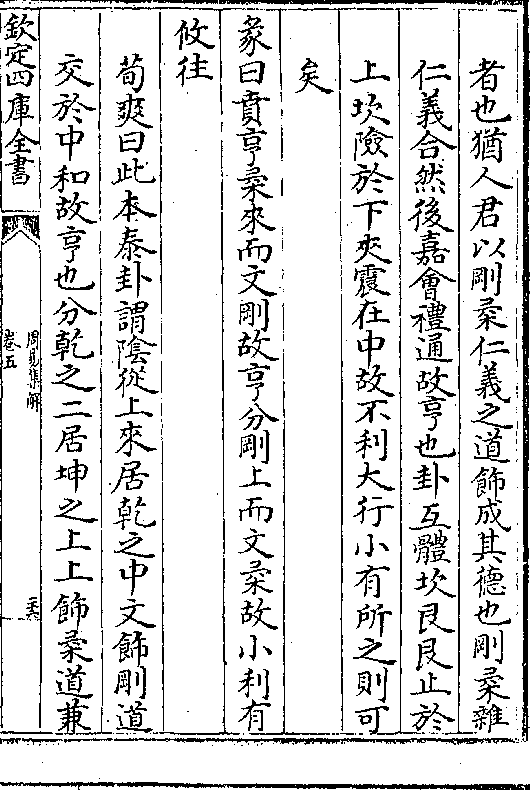 者也猶人君以剛柔仁義之道飾成其德也剛柔雜
仁義合然後嘉會禮通故亨也卦互體坎艮艮止於
上坎險於下夾震在中故不利大行小有所之則可
矣
彖曰賁亨柔來而文剛故亨分剛上而文柔故小利有
攸往
荀爽曰此本泰卦謂陰從上來居乾之中文飾剛道
交於中和故亨也分乾之二居坤之上上飾柔道兼
欽定四庫全書
周易集解
卷五